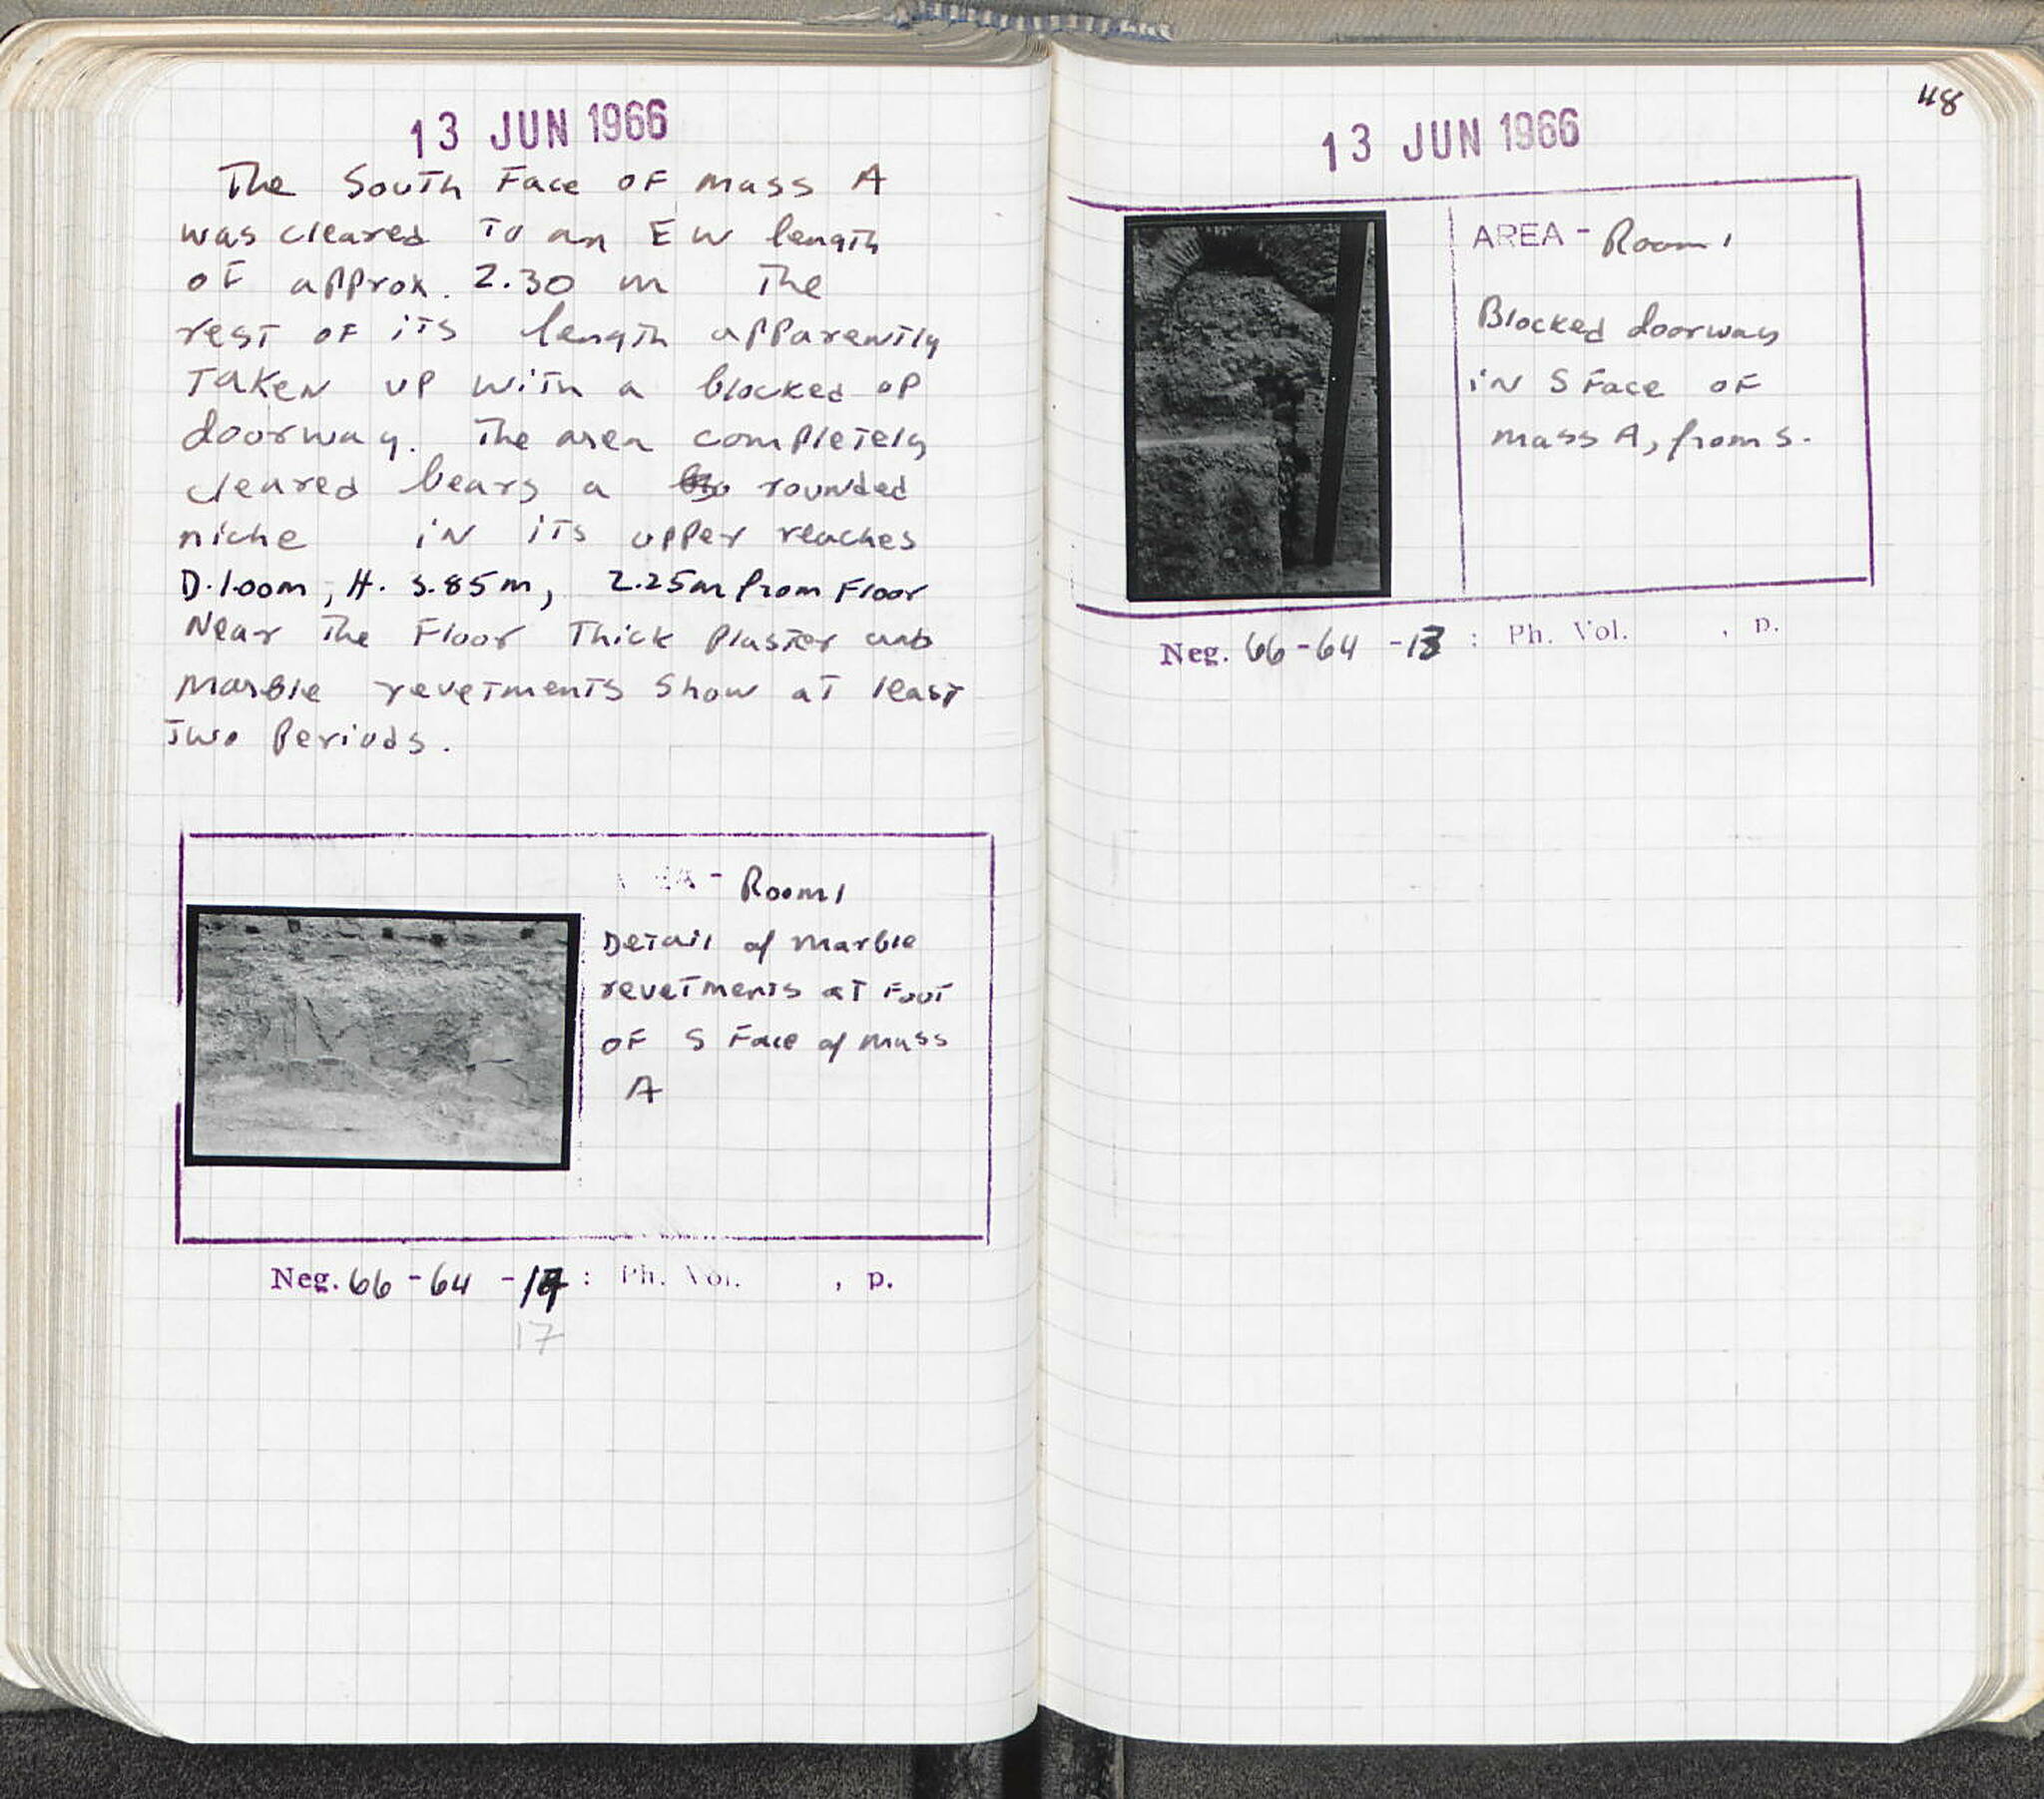 13 JUN 1966
The South Face of mass A
was cleared to an E W length
of approx. 2.30 m The
rest of its length apparently
Taken up with a blocked up
doorway. The area completely
cleared bears a rounded
niche in its upper reaches
D. 1.00m, H. 3.85m, 2.25m from Floor
Near The Floor Thick plaster and
Marble revetments show at least
two periods.
AREA - Room 1
Detail of marble
revetments at foot
of S Face of mass
A
Neg. 66 - 64 - 17 : Ph. Vol. , p.
17
48
13 JUN 1966
AREA - Room 1
Blocked doorway
in S Face of
mass A, from S.
Neg. 66 - 64 - 13 : Ph. Vol. , p.